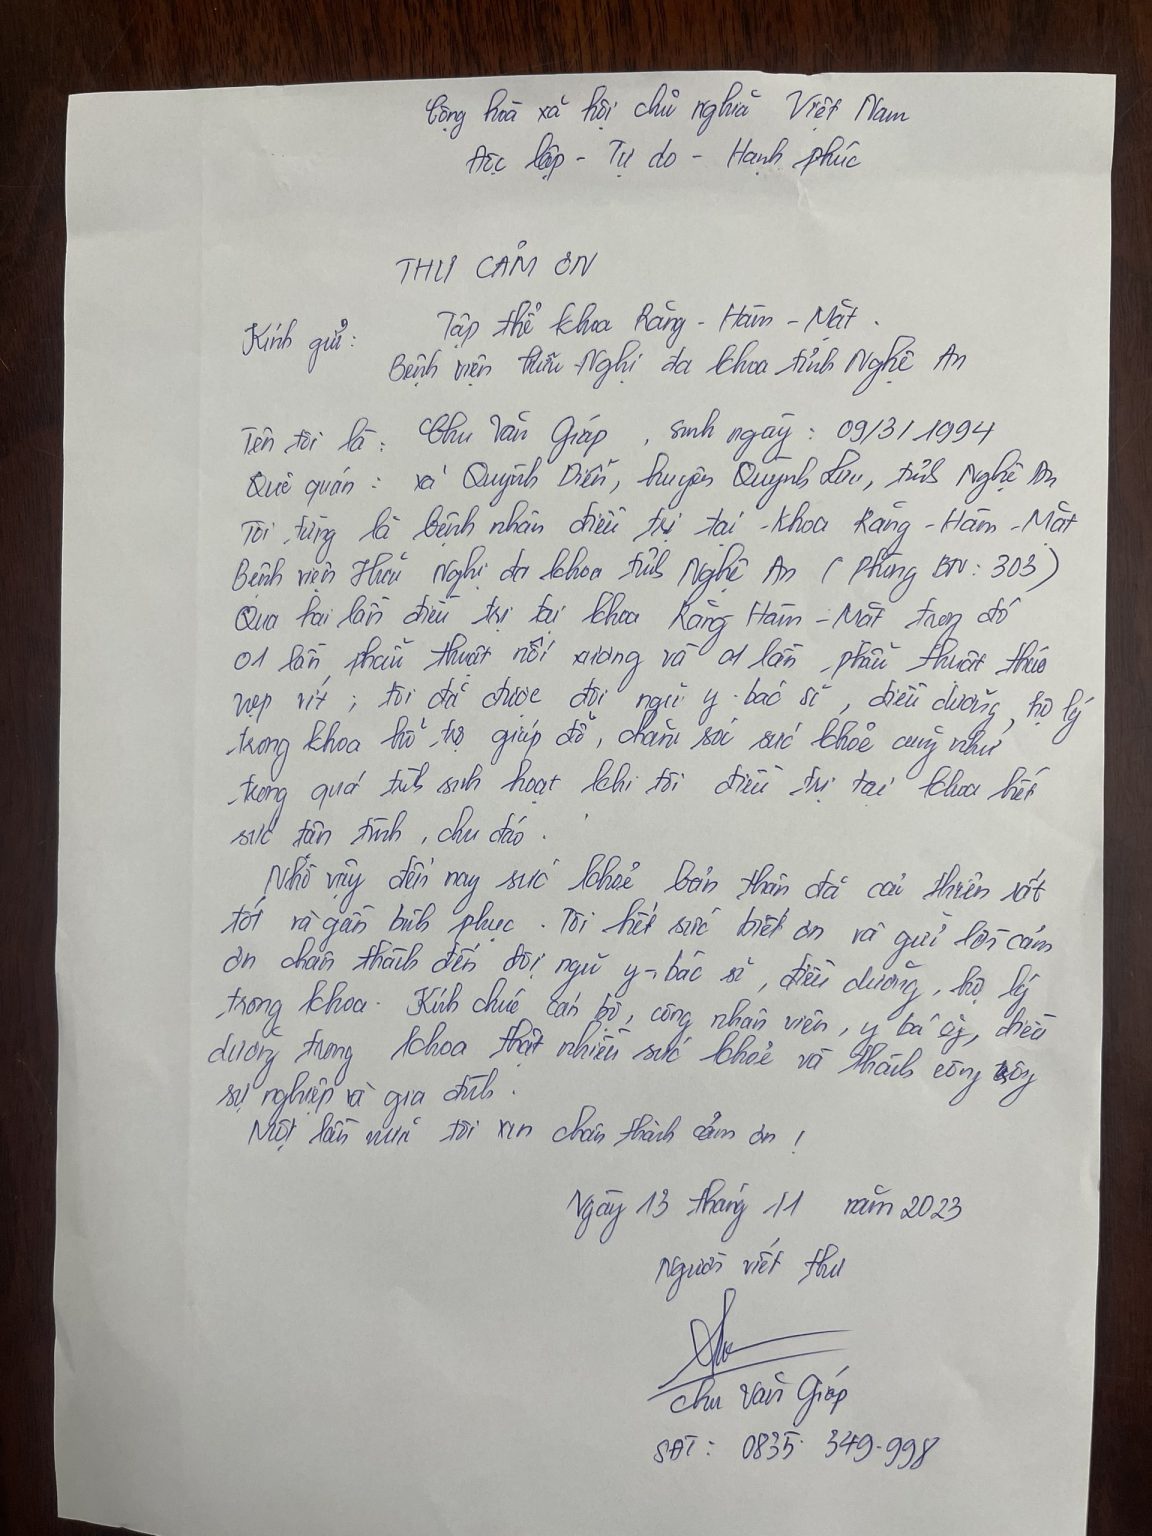 Cộng hoà xã hội chủ nghĩa Việt Nam
Độc lập - Tự do - Hạnh phúc
THƯ CẢM ƠN
Kính gửi: Tập thể khoa Răng - Hàm - Mặt.
Bệnh viện Hữu Nghị đa khoa tỉnh Nghệ An
Tên tôi là: Chu Văn Giáp, sinh ngày: 09/3/1994
Quê quán: xã Quỳnh Diễn, huyện Quỳnh Lưu, tỉnh Nghệ An
Tôi từng là bệnh nhân điều trị tại khoa Răng - Hàm - Mặt
Bệnh viện Hữu Nghị đa khoa tỉnh Nghệ An (Phòng BN: 303)
Qua hai lần điều trị tại khoa Răng Hàm - Mặt trong đó
01 lần phẫu thuật nối xương và 01 lần phẫu thuật tháo
nẹp vít; tôi đã được đội ngũ y-bác sĩ, điều dưỡng, hộ lý
trong khoa hỗ trợ giúp đỡ, chăm sóc sức khoẻ cũng như
trong quá trình sinh hoạt khi tôi điều trị tại khoa hết
sức tận tình, chu đáo.
Nhờ vậy đến nay sức khoẻ bản thân đã cải thiện rất
tốt và gần bình phục. Tôi hết sức biết ơn và gửi lời cảm
ơn chân thành đến đội ngũ y-bác sĩ, điều dưỡng, hộ lý
trong khoa. Kính chúc cán bộ, công nhân viên, y bác sỹ, điều
dưỡng trong khoa thật nhiều sức khoẻ và thành công trong
sự nghiệp và gia đình.
Một lần nữa tôi xin chân thành cảm ơn!
Ngày 13 tháng 11 năm 2023
Người viết thư
Chu Văn Giáp
SĐT: 0835.349.998